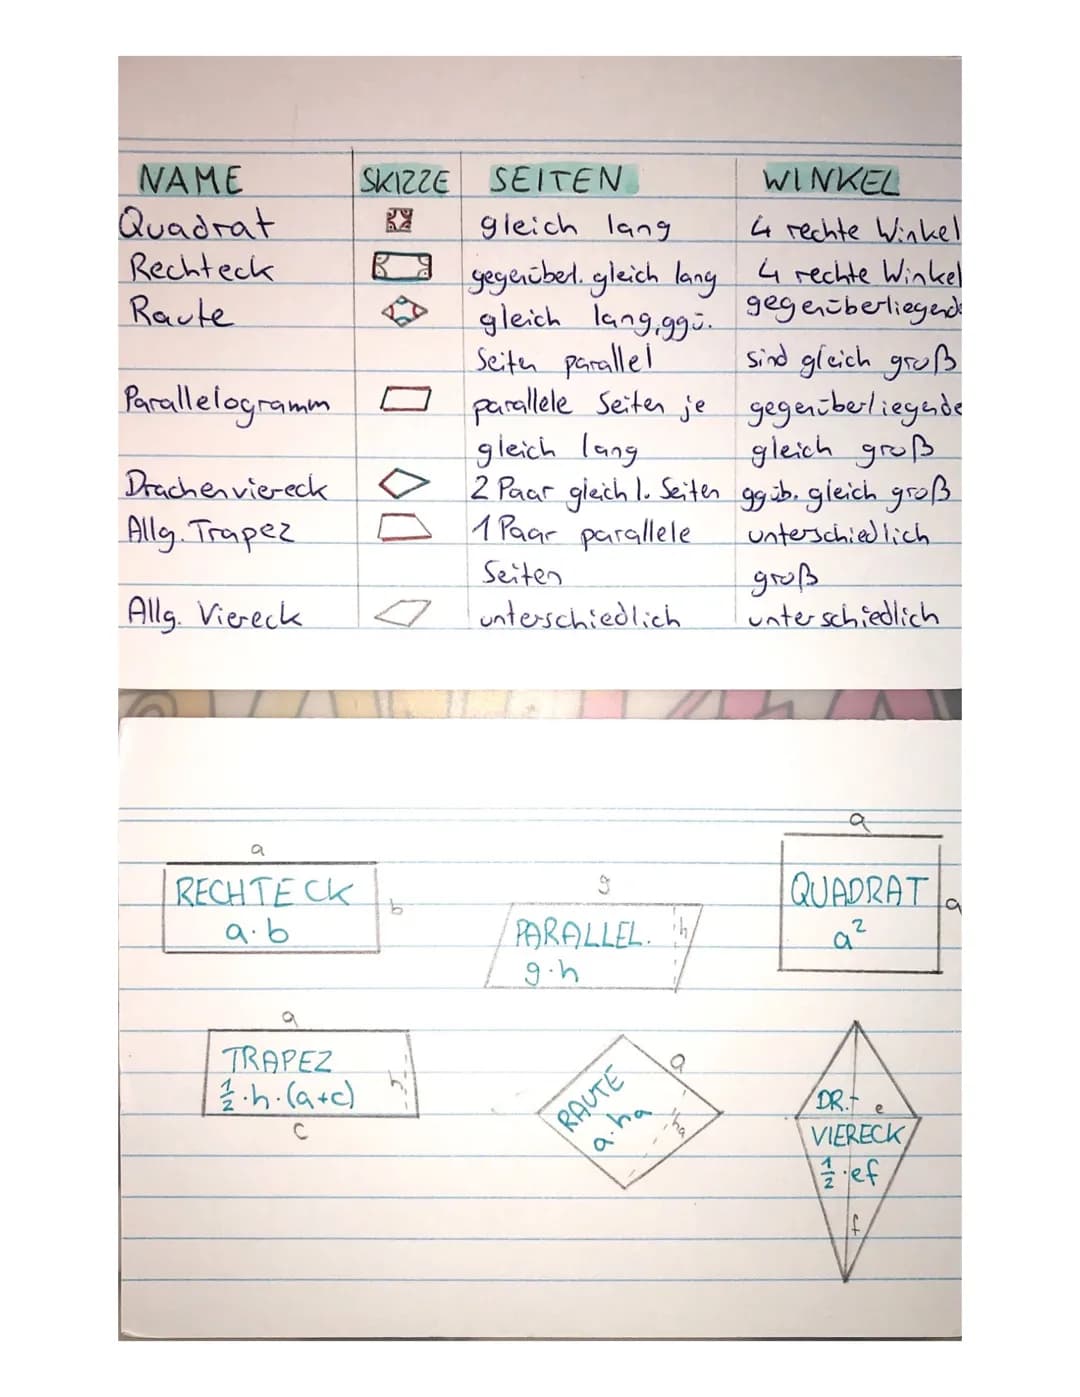 NAME SKIZZE SEITEN WINKEL
Quadrat gleich lang 4 rechte Winkel
Rechteck gegenüberl. gleich lang 4 rechte Winkel
Raute gleich lang, ggü. gegenüberliegende
Seiten parallel sind gleich groß
Parallelogramm parallele Seiten je gegenüberliegende
gleich lang gleich groß
Drachenviereck 2 Paar gleich l. Seiten ggüb. gleich groß
Allg. Trapez 1 Paar parallele unterschiedlich
Seiten groß
Allg. Viereck unterschiedlich unterschiedlich
a
RECHTECK
a·b
b
g
PARALLEL.
h
g·h
a
QUADRAT
a
a²
a
TRAPEZ
½·h·(a+c)
h
c
a
RAUTE
a·ha
ha
DR.
e
VIERECK
½·ef
f